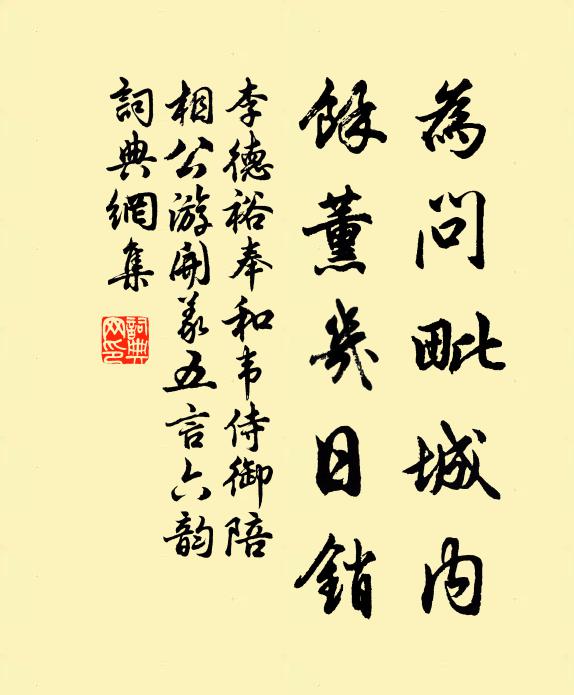 為問毗城內
餘薰幾日銷
李德裕奉和韦侍御陪
相公游開义五言六韵
詞典網集
詞典
网印